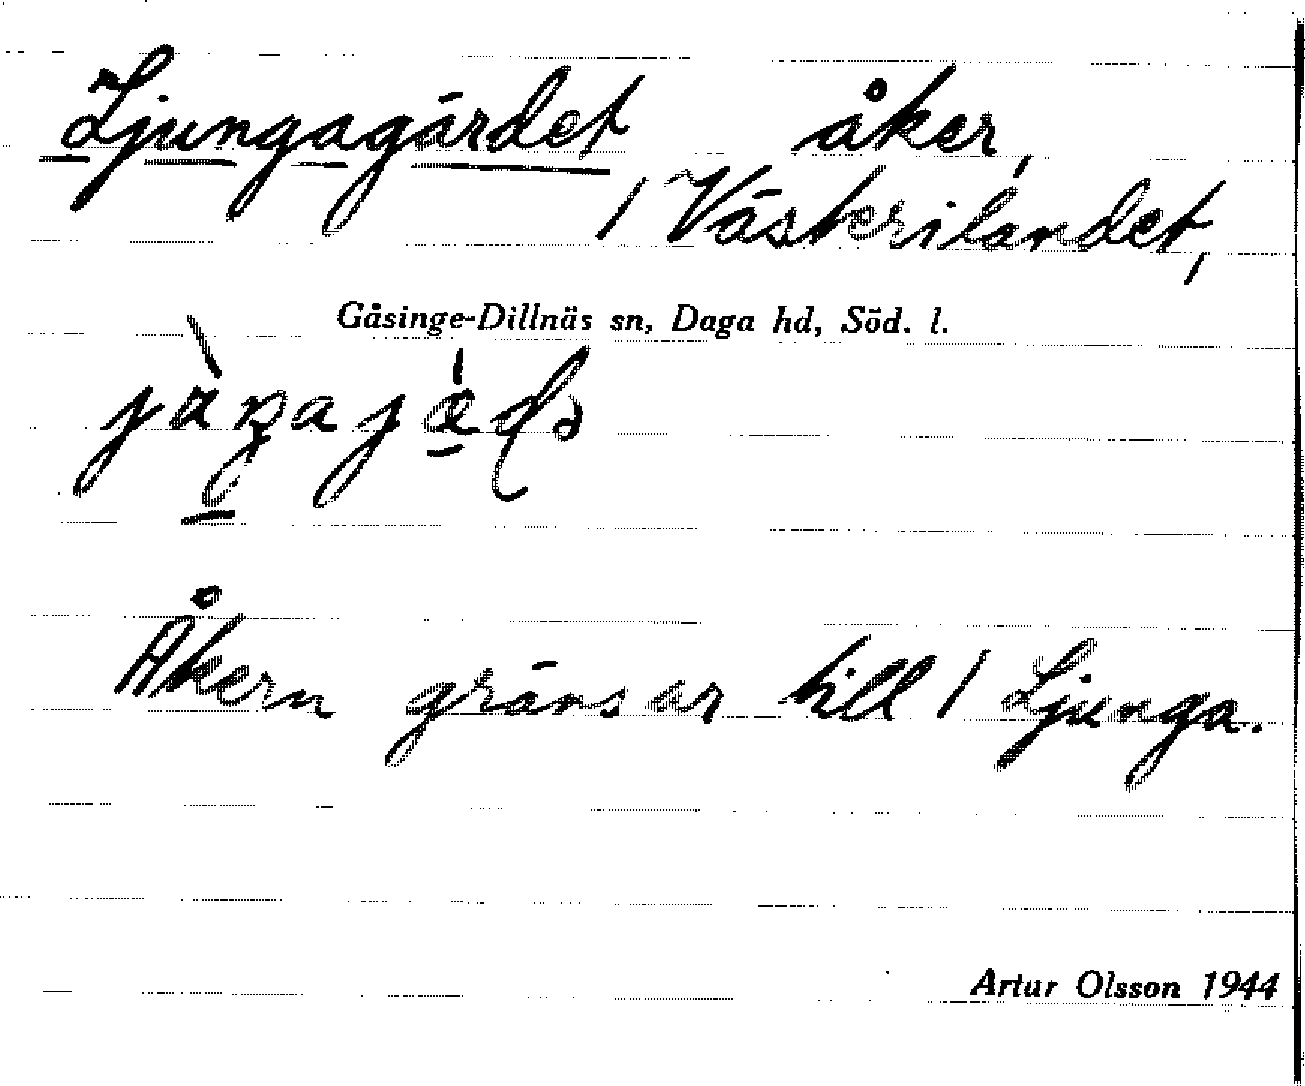 Ljungagärdet åker,
/ Västerilandet,
Gåsinge-Dillnäs sn, Daga hd, Söd. l.
Åkern gränsar till / Ljunga.
Artur Olsson 1944